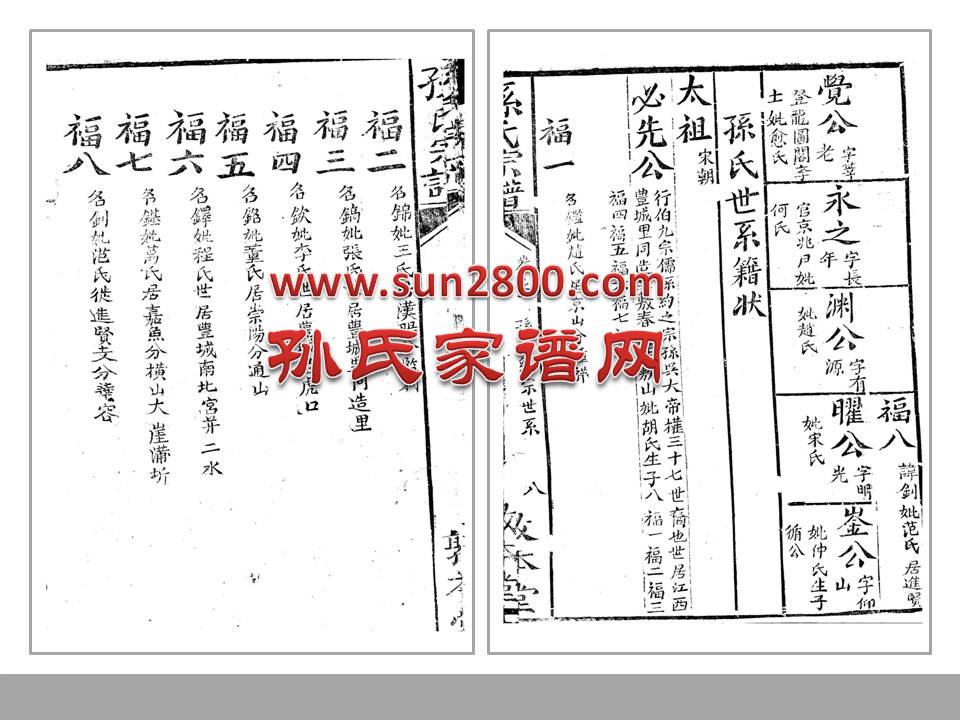 覺公 字莘老
登龍圖閣李士妣愈氏
永之 字長年
官京兆尹妣何氏
渊公 字有源
妣趙氏
曜公 字明光
妣宋氏
崟公 字仰山
妣仲氏生子循公
福八 諱釗妣范氏居進賢
孫氏世系籍狀
太祖 宋朝
必先公 行伯九宗儒系約之宗孫吳大帝權三十七世裔也世居江西
豐城里同造 妣胡氏生子八福一福二福三
福四福五福 福七
福一
名鑑妣趙氏
孫氏宗譜
世系
八
www.sun2800.com
孙氏家谱网
孫氏宗譜
福二
名錦妣王氏
福三
名鎬妣張氏 居豐城 同造里
福四
名欽妣李氏世居豐 虎口
福五
名銘妣董氏居崇陽分通山
福六
名鐸妣程氏世居豐城南北宮并二水
福七
名鑑妣萬氏居嘉魚分横山大崖蒲圻
福八
名釗妣范氏徙進賢支分華容